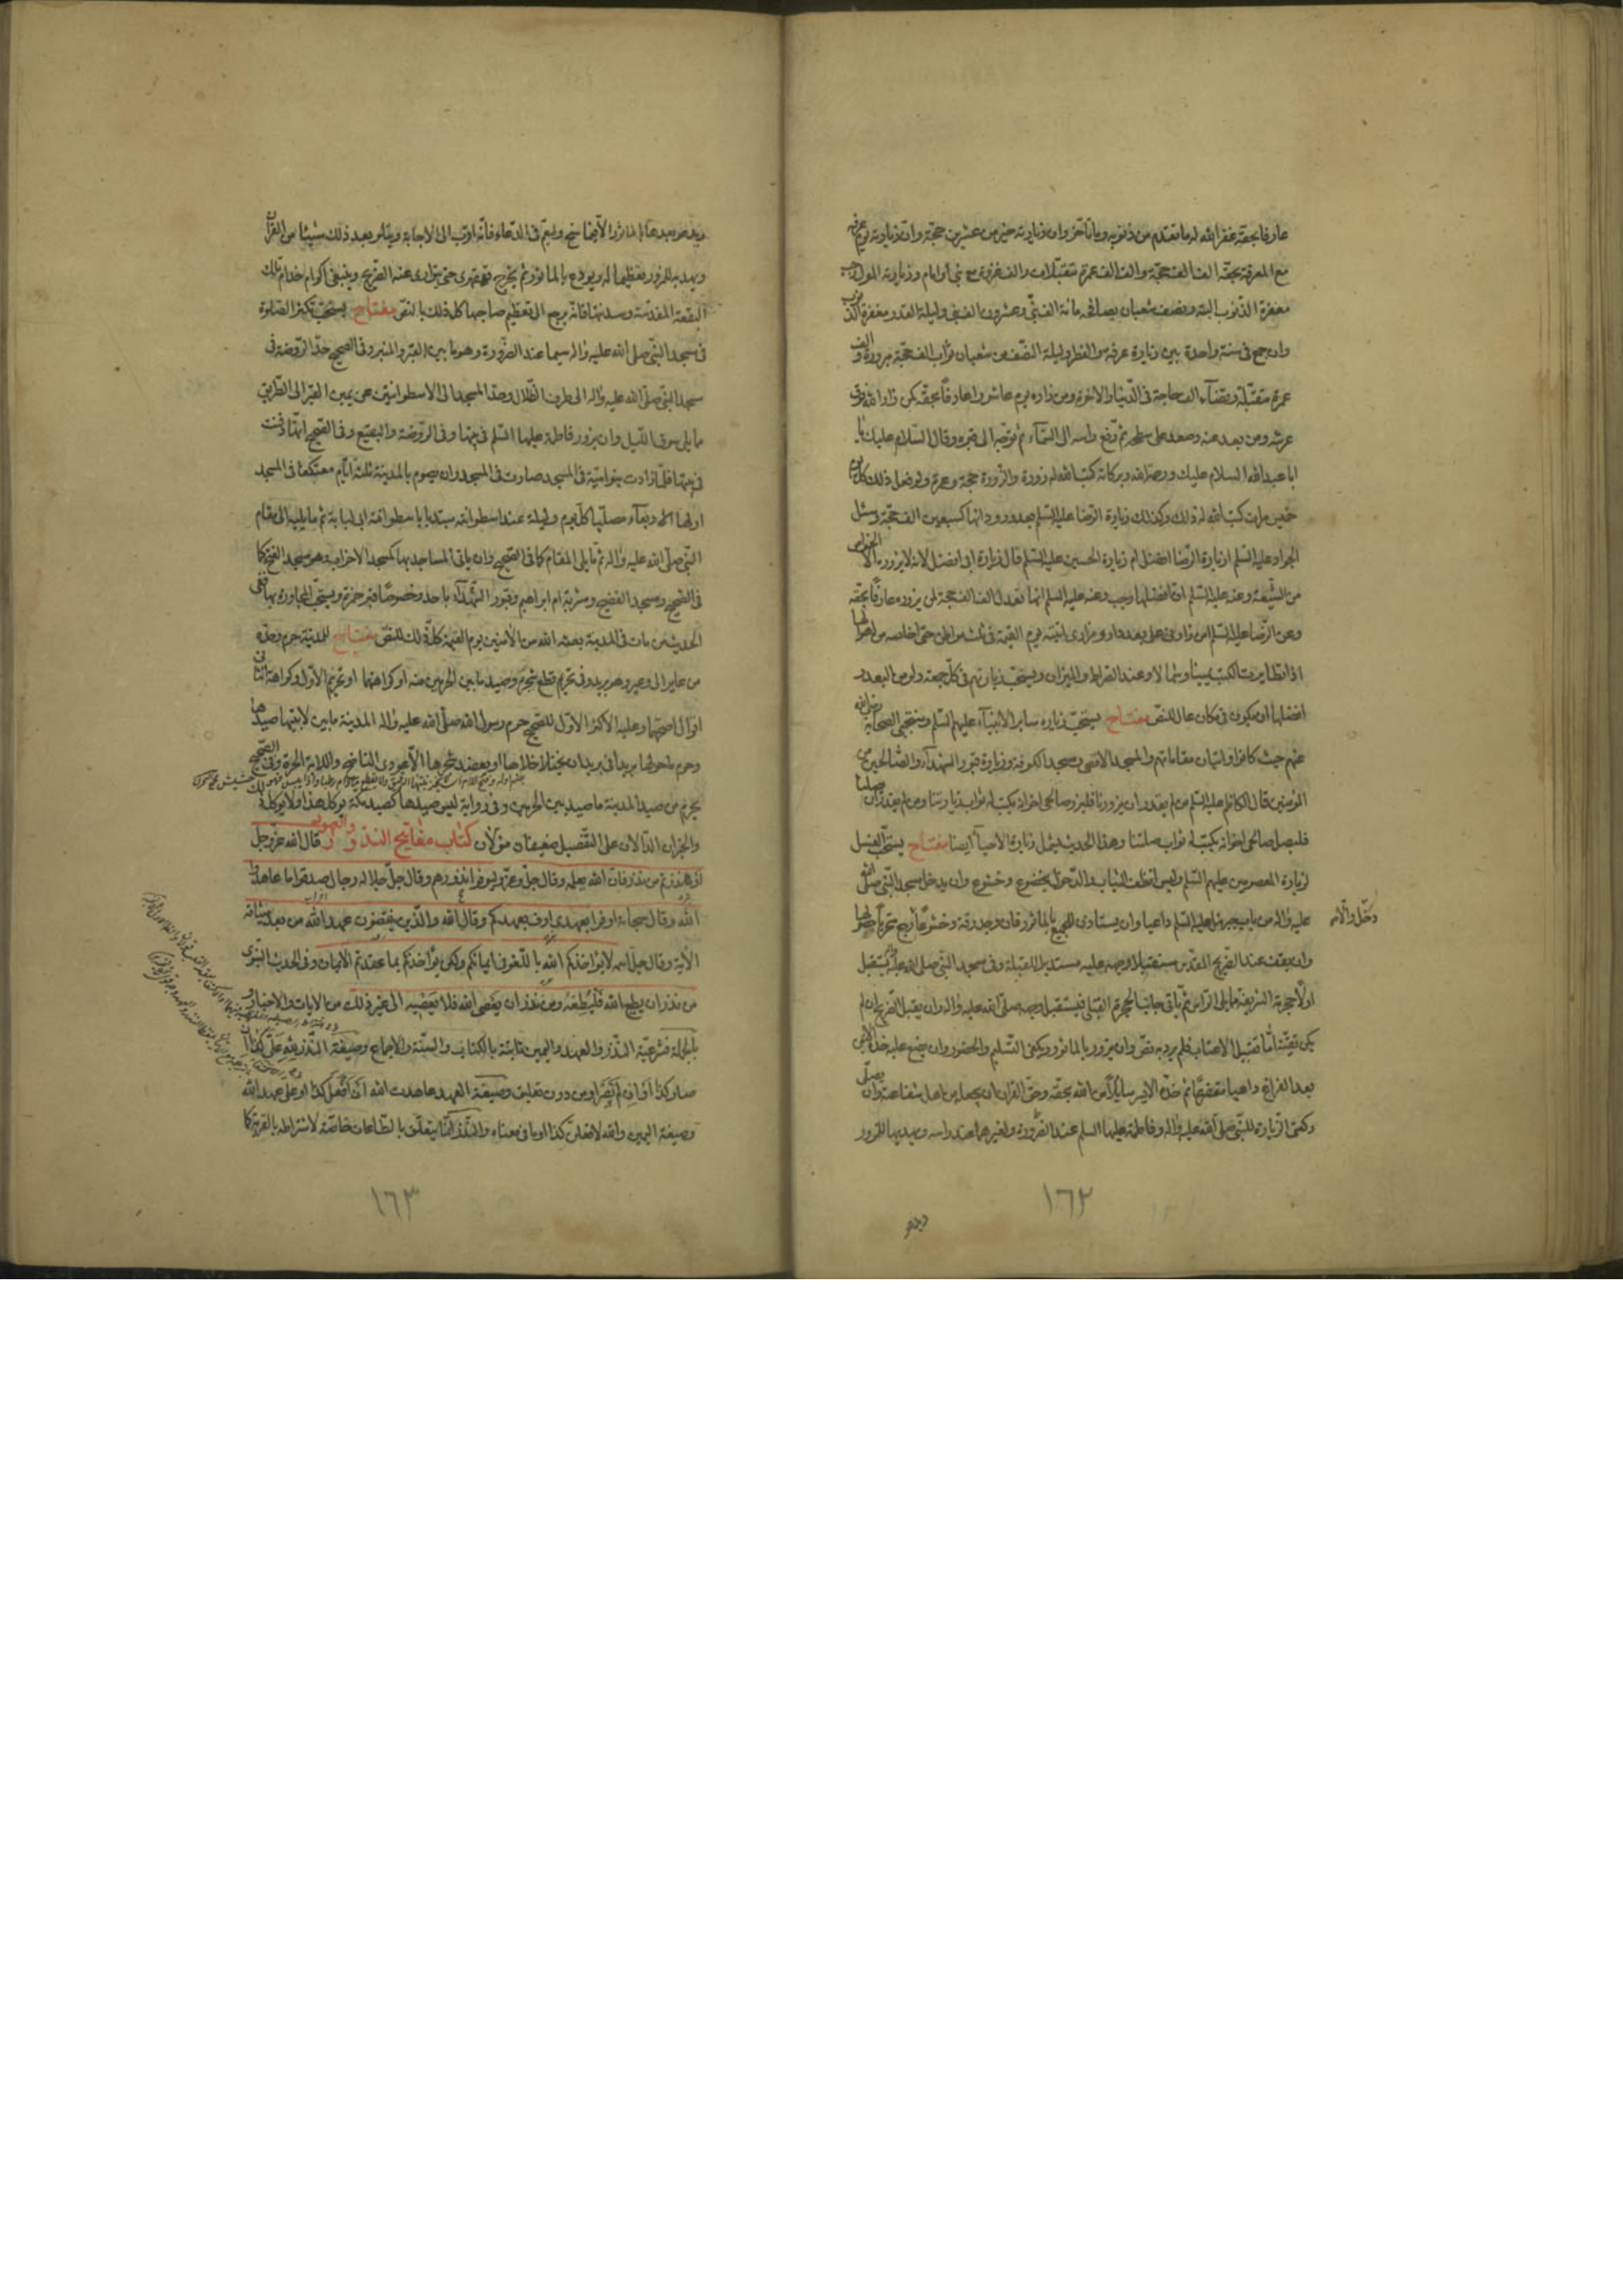 عارفا بحقه غفر الله له ما تقدم من ذنوبه وما تاخر وان زيارته خير من عشرين حجة وان زيارته يوم عرفة
مع المعرفة بحقه الف الف حجة والف الف عمرة متقبلات والف غزوة مع نبي او امام وزيارته اول رجب
مغفرة الذنوب البتة ونصف شعبان يصافحه مائة الف نبي وعشرون الف نبي وليلة القدر مغفرة الذنوب
وان جمع في سنة واحدة بين زيارة عرفة والفطر وليلة النصف من شعبان ثواب الف حجة مبرورة والف
عمرة متقبلة وقضاء الف حاجة في الدنيا والاخرة ومن زاره يوم عاشورا عارفا بحقه كمن زار الله فوق
عرشه ومن بعد عنه وصعد على سطحه ثم رفع راسه الى السماء ثم توجه الى قبره وقال السلام عليك يا
ابا عبد الله السلام عليك ورحمة الله وبركاته كتب الله له زورة والزورة حجة وعمرة ولو فعل ذلك كل يوم
خمس مرات كتب الله له ذلك وكذلك زيارة الرضا عليه السلم وانها كسبعين الف حجة وسئل
الجواد عليه السلم ازيارة الرضا افضل ام زيارة الحسين عليه السلم قال زيارة ابي افضل لانه لا يزوره الا الخواص
من الشيعة وعنه عليه السلم ان افضلها رجب وعنه عليه السلم انها تعدل الف الف حجة لمن يزوره عارفا بحقه
وعن الرضا عليه السلم من زارني على بعد داري ومزاري اتيته يوم القيمة في ثلث مواطن حتى اخلصه من اهوالها
اذا تطايرت الكتب يمينا وشمالا وعند الصراط والميزان ويستحب زيارتهم في كل جمعة ولو من البعد و
افضلها ان يكون في مكان عال للنص مفتاح يستحب زيارة ساير الانبياء عليهم السلم ومنتجبي الصحابة رضي الله
عنهم حيث كانوا واتيان مقاماتهم والمسجد الاقصى ومسجد الكوفة وزيارة قبور الشهداء والصالحين من
المؤمنين قال الكاظم عليه السلم من لم يقدر ان يزورنا فليزر صالحي اخوانه يكتب له ثواب زيارتنا ومن لم يقدر ان صلتنا
فليصل صالحي اخوانه يكتب له ثواب صلتنا وهذا الحديث يشمل زيارة الاحياء ايضا مفتاح يستحب الغسل
لزيارة المعصومين عليهم السلم ولبس انظف الثياب والدخول بخضوع وخشوع وان يدخل مسجد النبي صلى الله
عليه واله من باب جبرئيل عليه السلم داعيا وان يستاذن للجميع بالماثور فان وجد رقة وخشوعا
دخل والا
وان يقف عند الضريح المقدس مستقبلا وجهه عليه مستدبرا للقبلة وفي مسجد النبي صلى الله عليه واله يستقبل
اولا حجرته الشريفة مما يلي الراس ثم ياتي جانب الحجرة القبلي فيستقبل وجهه صلى الله عليه واله وان يقبل الضريح ان لم
يكن تقية اما تقبيل الاعتاب فلم يرد به نص وان يزور بالماثور ويكفي التسليم والحضور وان يضع عليه خده الايمن
بعد الفراغ داعيا متضرعا ثم خده الايسر سايلا من الله بحقه وحق القران ان يجعله من اهل شفاعته وان يصلي
ركعتي الزيارة للنبي صلى الله عليه واله وفاطمة عليها السلم عند الضرورة ولغيرهما عند راسه ويهديها للمزور
١٦٢
ويدعو بعدها بالماثور والا فبما سنح وليعم في الدعاء فانه اقرب الى الاجابة ويتلو بعد ذلك شيئا من القران
ويهديه للمزور تعظيما له ويودع بالماثور ثم يخرج قهقرى حتى يتوارى عنه الضريح وينبغي اكرام خدام تلك
البقعة المقدسة وسدنتها فانه يرجع الى تعظيم صاحبها كل ذلك بالنص مفتاح يستحب تكثير الصلوة
في مسجد النبي صلى الله عليه واله سيما عند الضرورة وهو ما بين القبر والمنبر وفي الصحيح حد الروضة في
مسجد النبي صلى الله عليه واله الى طرف الظلال وحد المسجد الى الاسطوانتين عن يمين القبر الى الطريق
مما يلي سوق الليل وان يزور فاطمة عليها السلم في بيتها وفي الروضة والبقيع وفي الصحيح انها دفنت
في بيتها فلما زادت بنو امية في المسجد صارت في المسجد وان يصوم بالمدينة ثلثة ايام معتكفا في المسجد
اولها الاربعاء مصليا كل يوم وليلة عند اسطوانة مبتديا باسطوانة ابي لبابة ثم ما يليه الى مقام
النبي صلى الله عليه واله ثم ما يلي المقام كما في الصحيح وان ياتي المساجد بها كمسجد الاحزاب وهو مسجد الفتح كما
في الصحيح ومسجد الفضيخ ومشربة ام ابراهيم وقبور الشهداء باحد وخصوصا قبر حمزة ويستحب المجاورة بها ففي
الحديث من مات في المدينة بعثه الله من الامنين يوم القيمة كل ذلك للنص مفتاح للمدينة حرم وحده
من عاير الى وعير وهو بريد وفي تحريم قطع شجره وصيد ما بين الحرمين منه او كراهتهما او تحريم الاول وكراهة الثاني
اقوال اصحها وعليه الاكثر الاول للصحيح حرم رسول الله صلى الله عليه واله المدينة ما بين لابتيها صيدها
وحرم ما حولها بريدا في بريد ان يختلى خلاها او يعضد شجرها الا عودي الناضح واللابة الحرة وفي الصحيح
يحرم من صيد المدينة ما صيد بين الحرمين وفي رواية ليس صيدها كصيد مكة يؤكل هذا ولا يؤكل ذلك
والخبران الدالان على التفصيل ضعيفان مؤولان كتاب مفاتيح النذور والعهود قال الله عز وجل
او نذرتم من نذر فان الله يعلمه وقال جل وعز وليوفوا نذورهم وقال جل جلاله رجال صدقوا ما عاهدوا
الله وقال سبحانه اوفوا بعهدي اوف بعهدكم وقال الله والذين ينقضون عهد الله من بعد ميثاقه
الاية وقال جل اسمه لا يؤاخذكم الله باللغو في ايمانكم ولكن يؤاخذكم بما عقدتم الايمان وفي الحديث النبوي
من نذر ان يطيع الله فليطعه ومن نذر ان يعصي الله فلا يعصيه الى غير ذلك من الايات والاخبار و
بالجملة فشرعية النذر والعهد واليمين ثابتة بالكتاب والسنة والاجماع وصيغة النذر لله علي كذا ان
صار كذا او ان لم يصر او من دون تعليق وصيغة العهد عاهدت الله ان افعل كذا او علي عهد الله
وصيغة اليمين والله لافعلن كذا او ما في معناه والنذر انما يتعلق بالطاعات خاصة لاشتراطه بالقربة كما
١٦٣